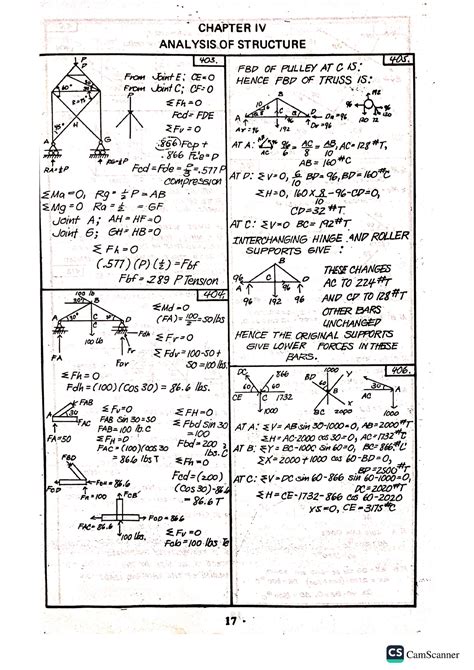 CHAPTER IV
ANALYSIS OF STRUCTURE
403.
From Joint E: CE=0
From Joint C; CF=0
ΣFh=0
Fcd = FDE
ΣFv=0
.866 Fcp +
.866 Fde = P
Fcd = Fde = P/√3 = .577 P
compression
RA=½P
RG=½P
ΣMa=0, Rg = ½ P = AB
ΣMg=0 Ra = ½ = GF
Joint A; AH = HF = 0
Joint G; GH = HB = 0
ΣFh=0
(.577)(P)(½) = Fbf
Fbf = .289 P Tension
404.
100 lb
ΣMd=0
(FA) = 100/2 = 50 lbs
ΣFv=0
Fdv = 100-50 +
50 = 100 lbs.
FA
100 lb
Fdh
Fr
Fdv
ΣFh=0
Fdh = (100)(Cos 30) = 86.6 lbs.
FAB
FAC
FA=50
ΣFv=0
FAB Sin 30 = 50
FAB = 100 lb. C
ΣFh=0
FAC = (100)(Cos 30
= 86.6 lbs T
ΣFH=0
Fbd Sin 30
= 100
Fbd = 200
lbs. C
ΣFh=0
Fcd = (200)
(Cos 30) - 86.6
= 86.6 T
FBD
FCD
Fdh = 86.6
Fr = 100
FcB
FAC = 86.6
FCD = 86.6
100 lbs.
ΣFv=0
Fcb = 100 lbs
405.
FBD OF PULLEY AT C IS:
HENCE FBD OF TRUSS IS:
Ay = 96
192
Dv = 96
Dh = 96
AT A: 96/6 = AC/8 = AB/10, AC = 128#T,
AB = 160#C
AT D: ΣV=0, 6/10 BD = 96, BD = 160#C
ΣH=0, 160 X 8/10 - 96 - CD = 0,
CD = 32#T
AT C: ΣV=0 BC = 192#T
INTERCHANGING HINGE AND ROLLER
SUPPORTS GIVE :
THESE CHANGES
AC TO 224#T
AND CD TO 128#T
OTHER BARS
UNCHANGED
HENCE THE ORIGINAL SUPPORTS
GIVE LOWER FORCES IN THESE
BARS.
406.
DC
866
CE
C
1732
1000
BD
B
1000
BC=
AC
A
1000
AT A: ΣV = AB sin 30 - 1000 = 0, AB = 2000#T
ΣH = AC - 2000 cos 30 = 0, AC = 1732#C
AT B: ΣY = BC - 1000 sin 60 = 0, BC = 866#C
ΣX = 2000 + 1000 cos 60 - BD = 0,
BD = 2500#T
AT C: ΣV = DC sin 60 - 866 sin 60 - 1000 = 0,
DC = 2020#T
ΣH = CE - 1732 - 866 cos 60 - 2020
CE = 3175#C
17
CS CamScanner